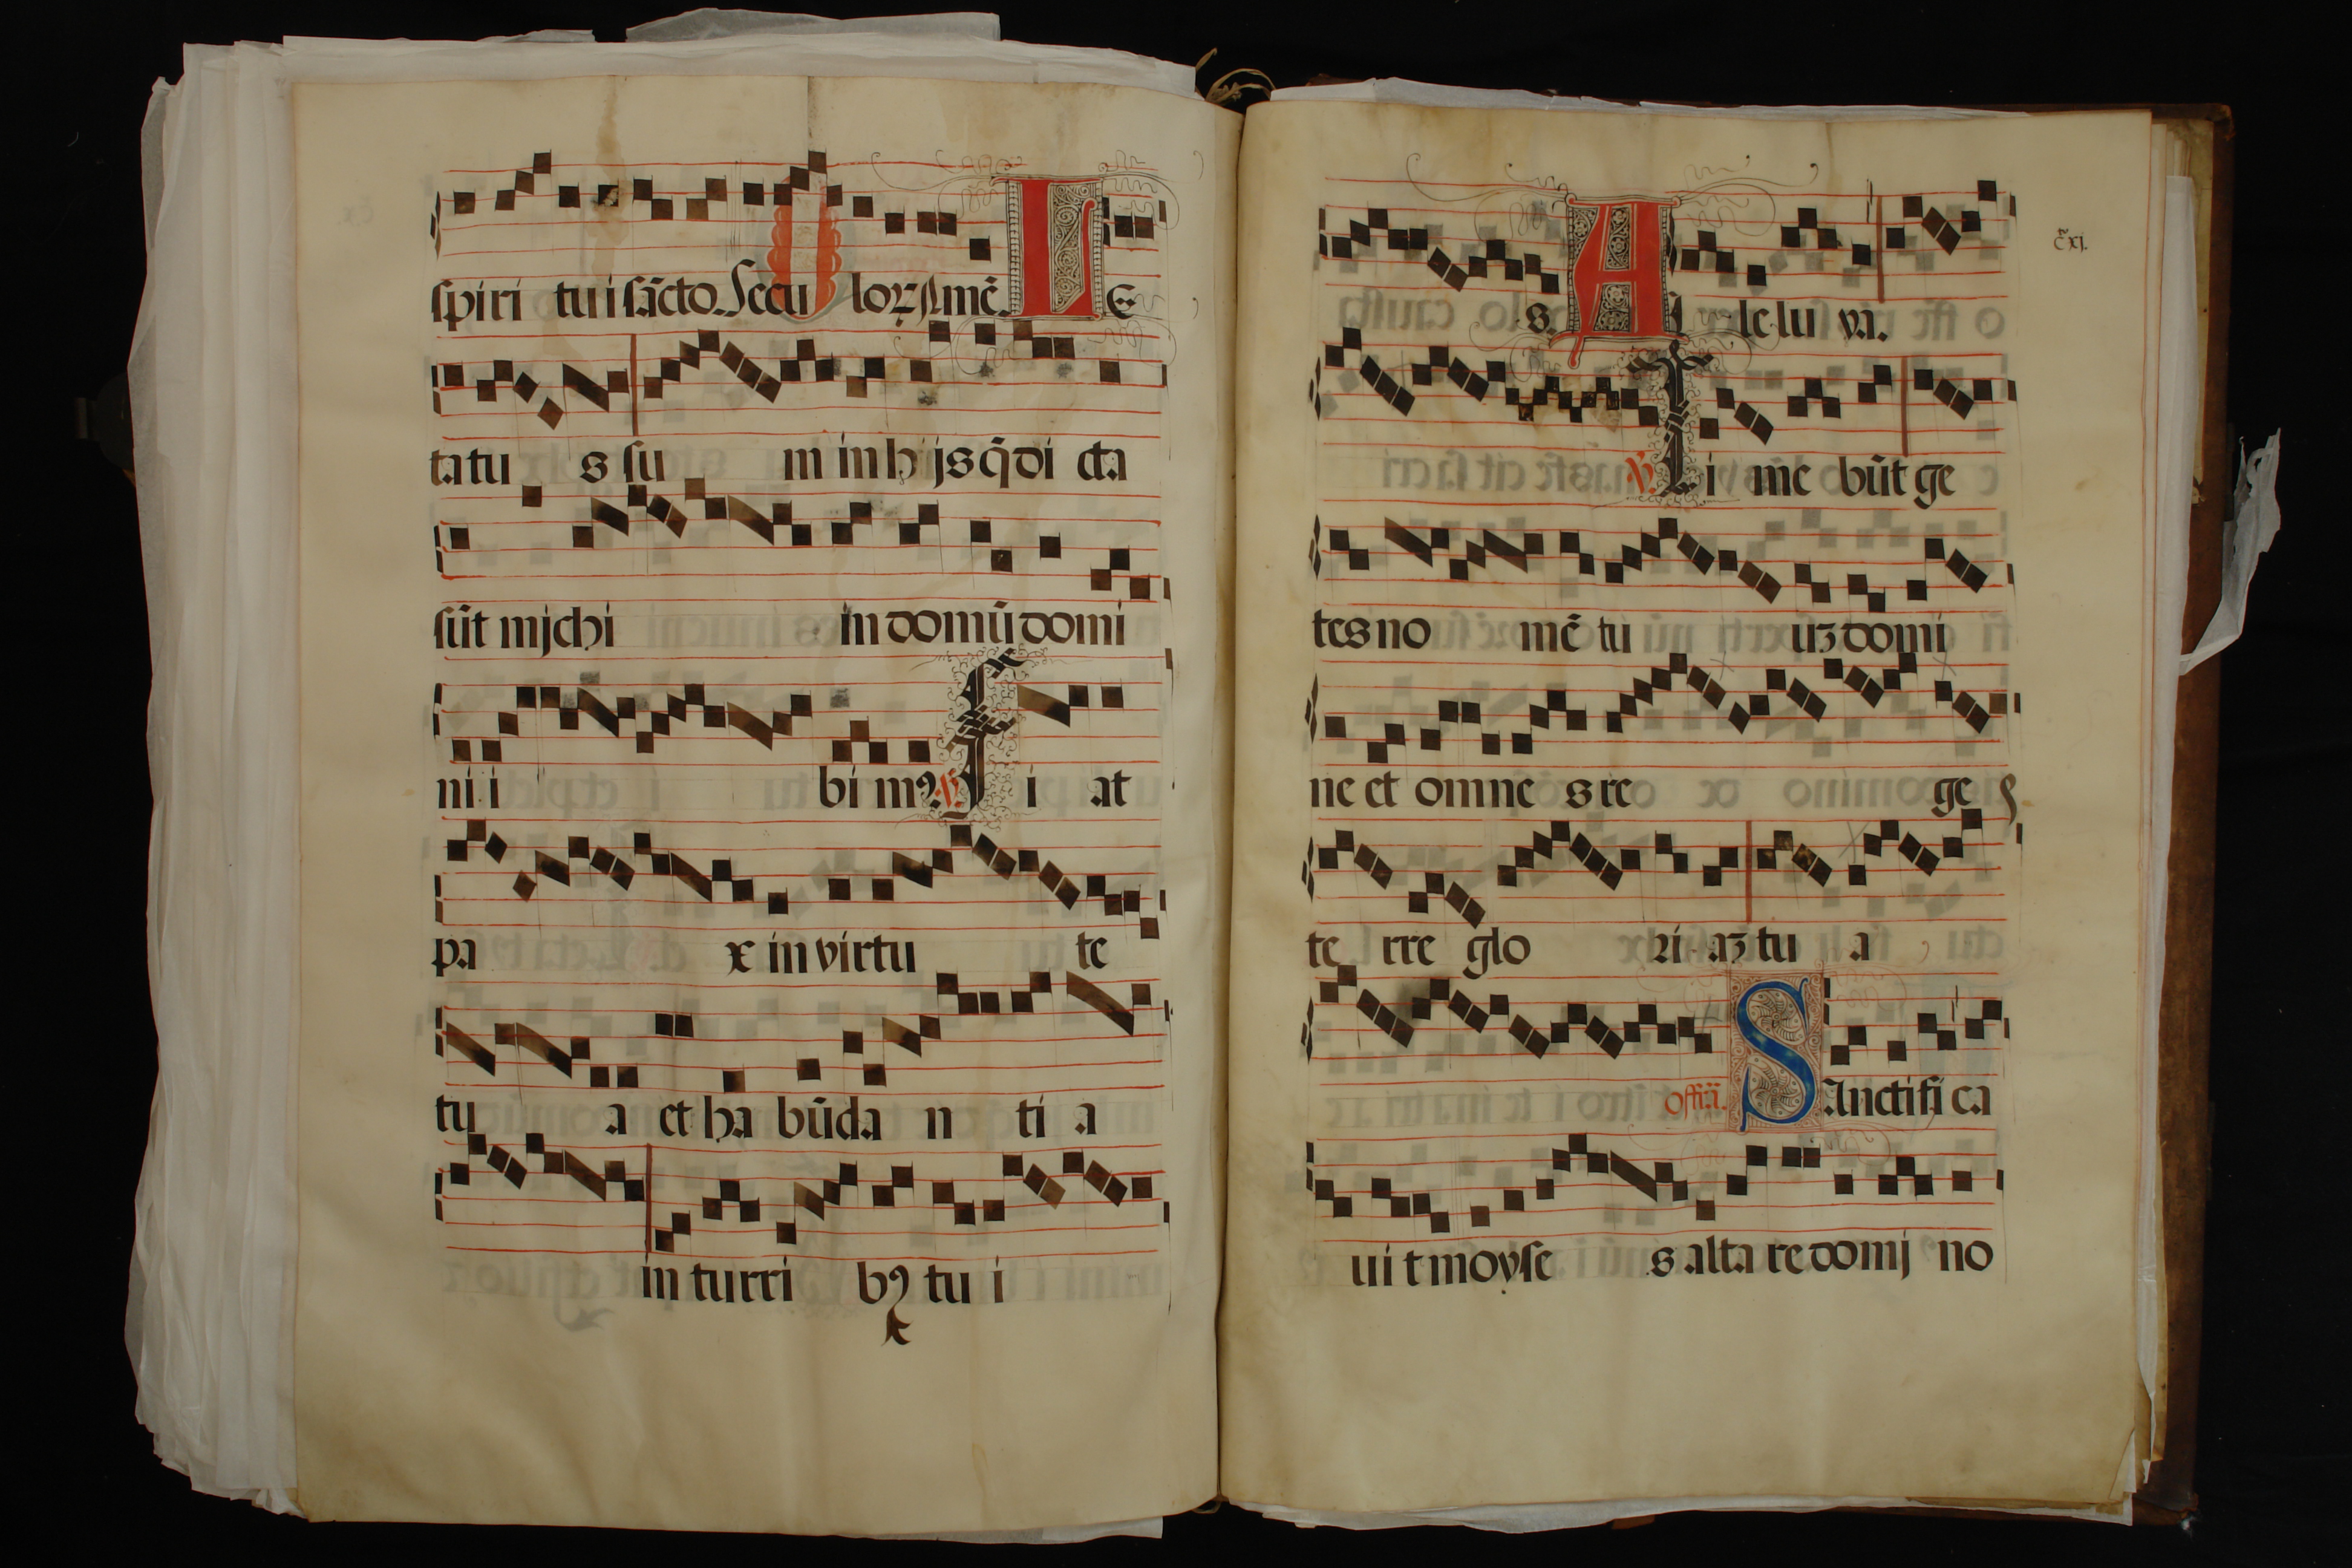 spiri tui sācto. Secu loꝝ Amē. L e
ta tu s su m in h ijs q̄ di cta
sūt mjchi in domū domi
ni i bi mꝰ. ℣. F i at
pa x in virtu te
tu a et ha būda n ti a
in turri bꝰ tu i
c̄xj.
s. A l le lu ya.
℣. T i me būt ge
tes no mē tu uʒ domi
ne et omne s re ges
te rre glo ri aʒ tu a
offr̄a. S Ancti fi ca
ui t moyse s alta re domj no